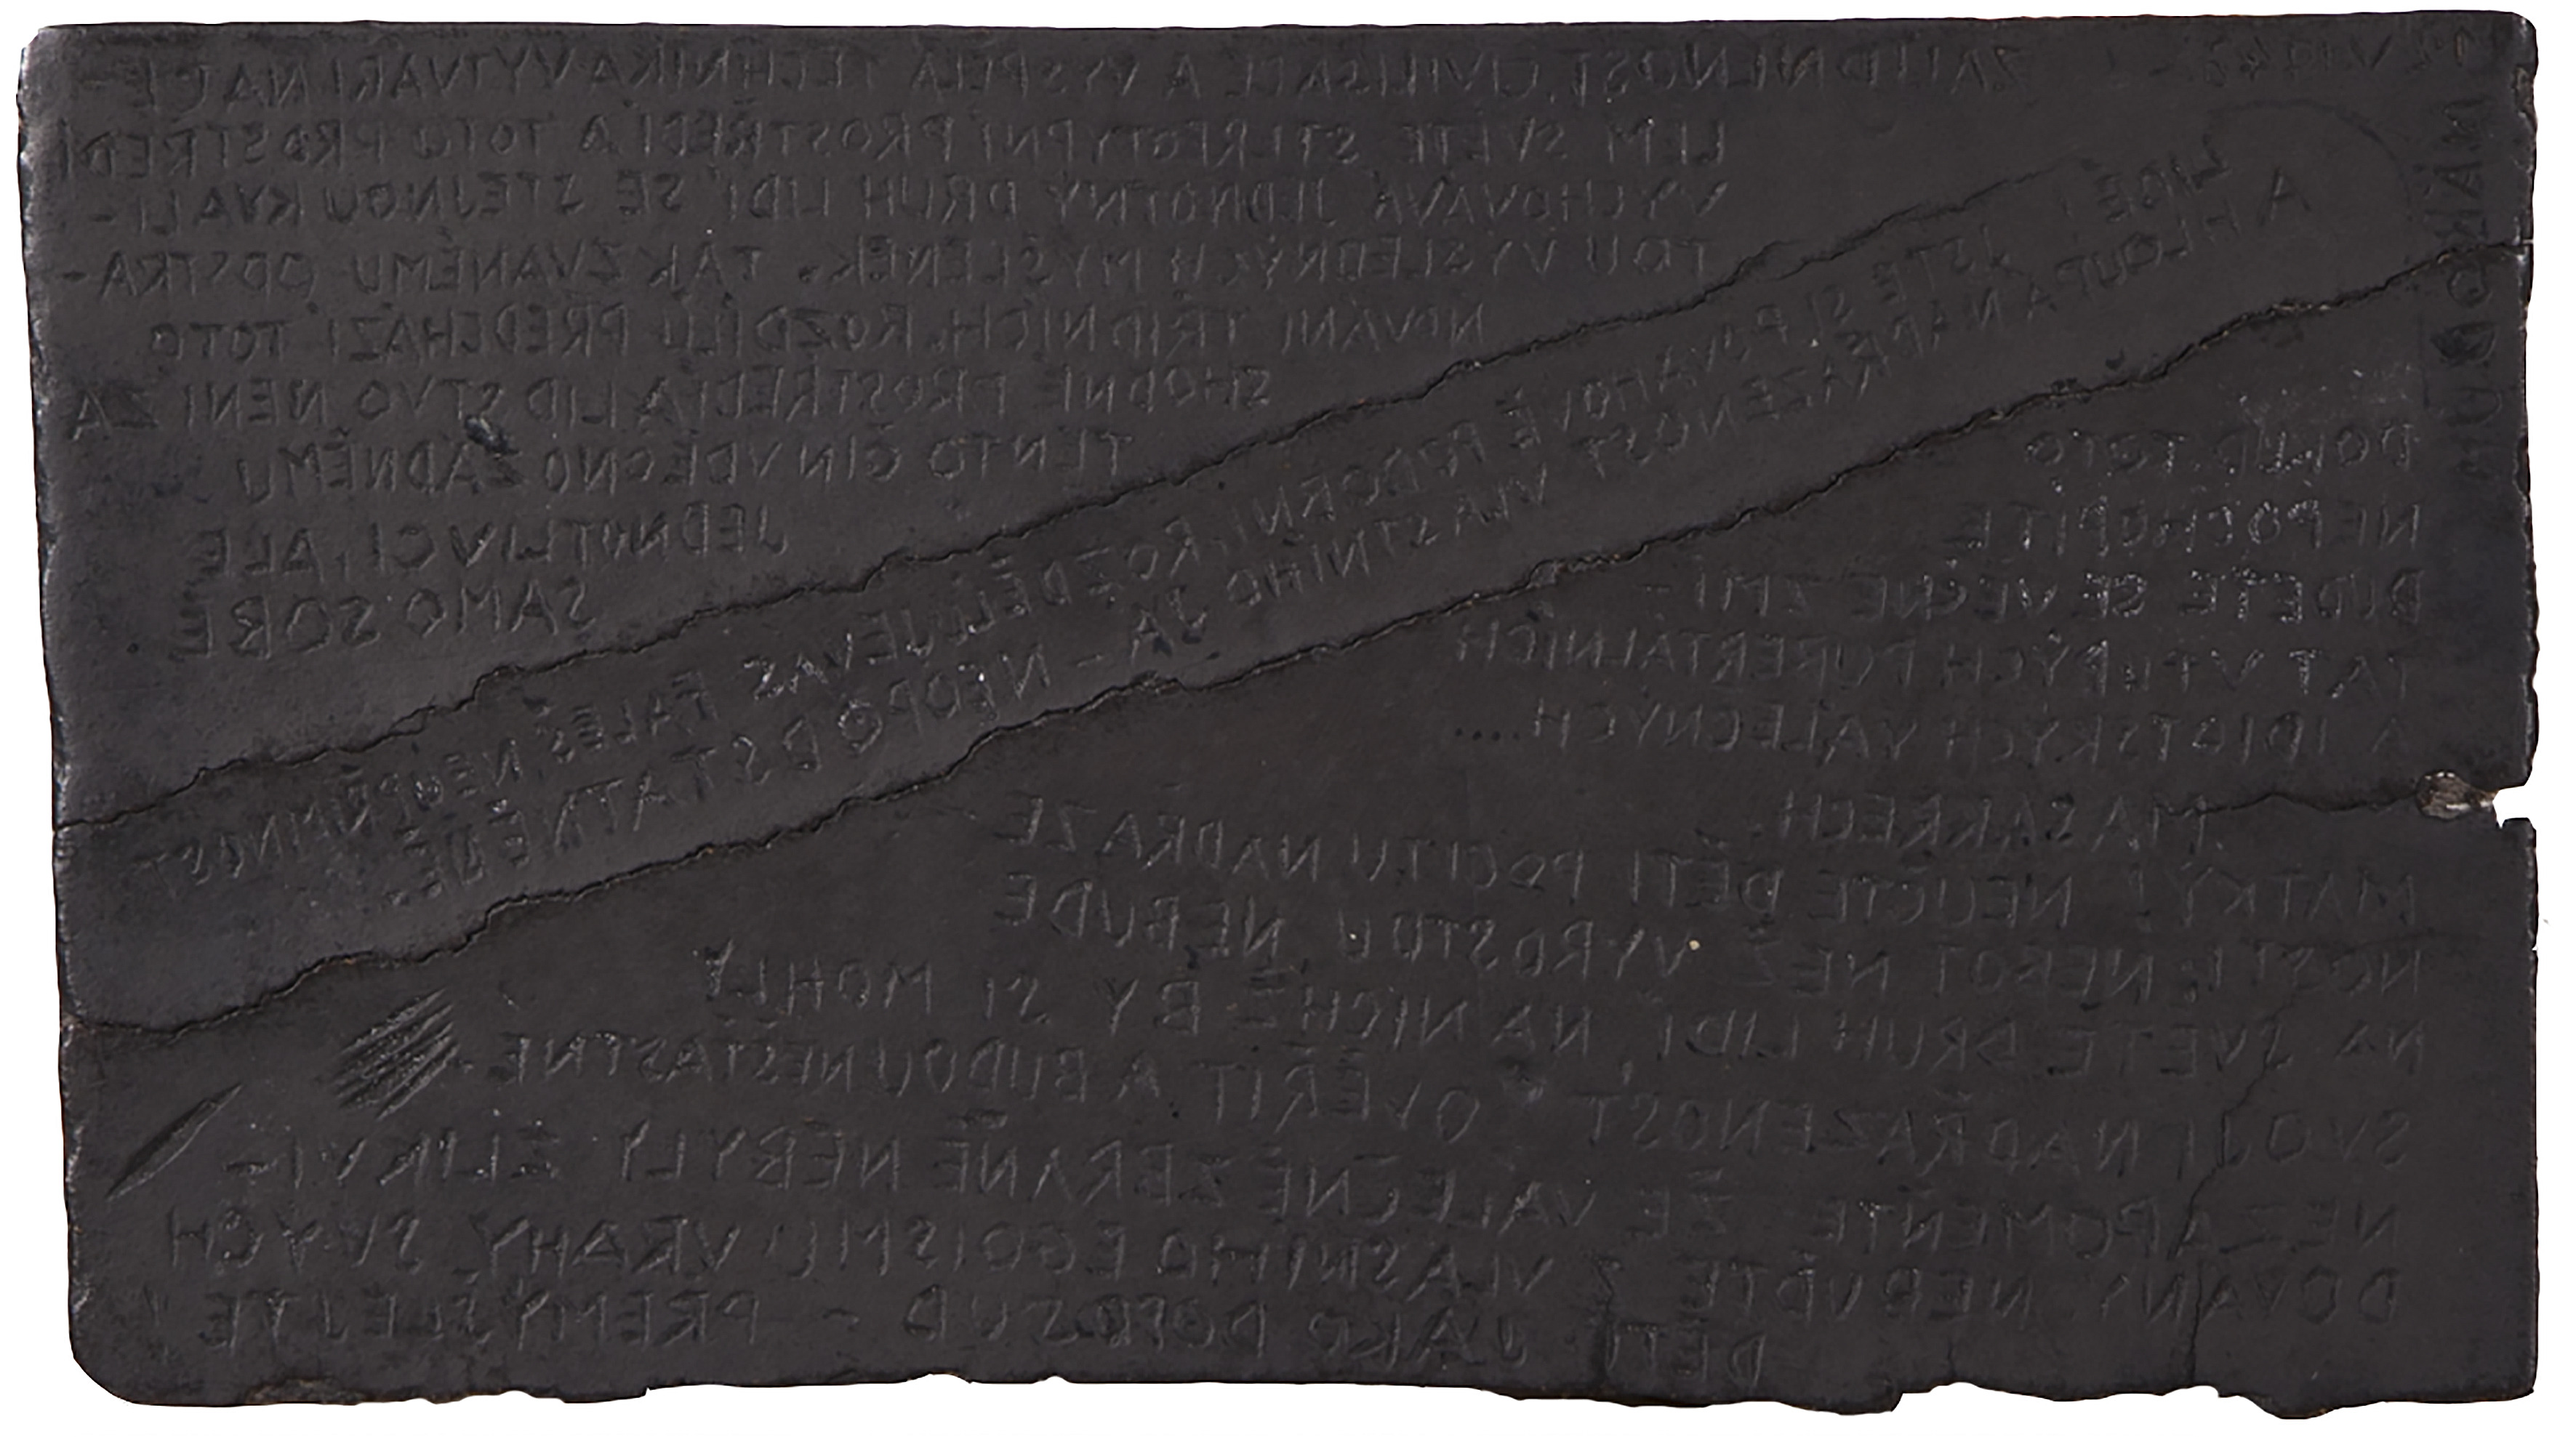 ZALIDNĚNOST, CIVILISACE A VYSPĚLÁ TECHNIKA VYTVÁŘÍ NA CE-
LÉM SVĚTĚ STEREOTYPNÍ PROSTŘEDÍ A TOTO PROSTŘEDÍ
VYCHOVÁVÁ JEDNOTNÝ DRUH LIDÍ, SE STEJNOU KVALI-
TOU VÝSLEDNÝCH MYŠLENEK. TAK ZVANÉMU ODSTRA-
NOVÁNÍ TŘÍDNÍCH ROZDÍLŮ PŘEDCHÁZÍ TOTO
SHODNÉ PROSTŘEDÍ A LIDSTVO NENÍ ZA
TENTO ČIN VDĚČNO ŽÁDNÉMU
JEDNOTLIVCI, ALE
SAMO SOBĚ
LIDÉ! JSTE SI POVAHOVĚ PODOBNI, ROZDĚLUJE VÁS FALEŠ, NEUPŘÍMNOST
A HLOUPÁ NADŘAZENOST VLASTNÍHO JÁ - NEOPODSTATNĚNÉ.
DOKUD TOTO
NEPOCHOPÍTE
BUDETE SE VĚČNĚ ZMÍ-
TAT V TUPÝCH PUBERTÁLNÍCH
A IDIOTSKÝCH VÁLEČNÝCH.....
MASAKRECH.
MATKY! NEUČTE DĚTI POCITU NADŘAZE-
NOSTI, NEBOŤ NEŽ VYROSTOU NEBUDE
NA SVĚTĚ DRUH LIDÍ, NA NICHŽ BY SI MOHLY
SVOJI NADŘAZENOST OVĚŘIT A BUDOU NEŠŤASTNÉ.
NEZAPOMEŇTE ŽE VÁLEČNÉ ZBRANĚ NEBYLY ZLIKVI-
DOVÁNY NEBUĎTE Z VLASNÍHO EGOISMU VRAHY SVÝCH
DĚTÍ JAKO DOPOSUD - PŘEMÝŠLEJTE!